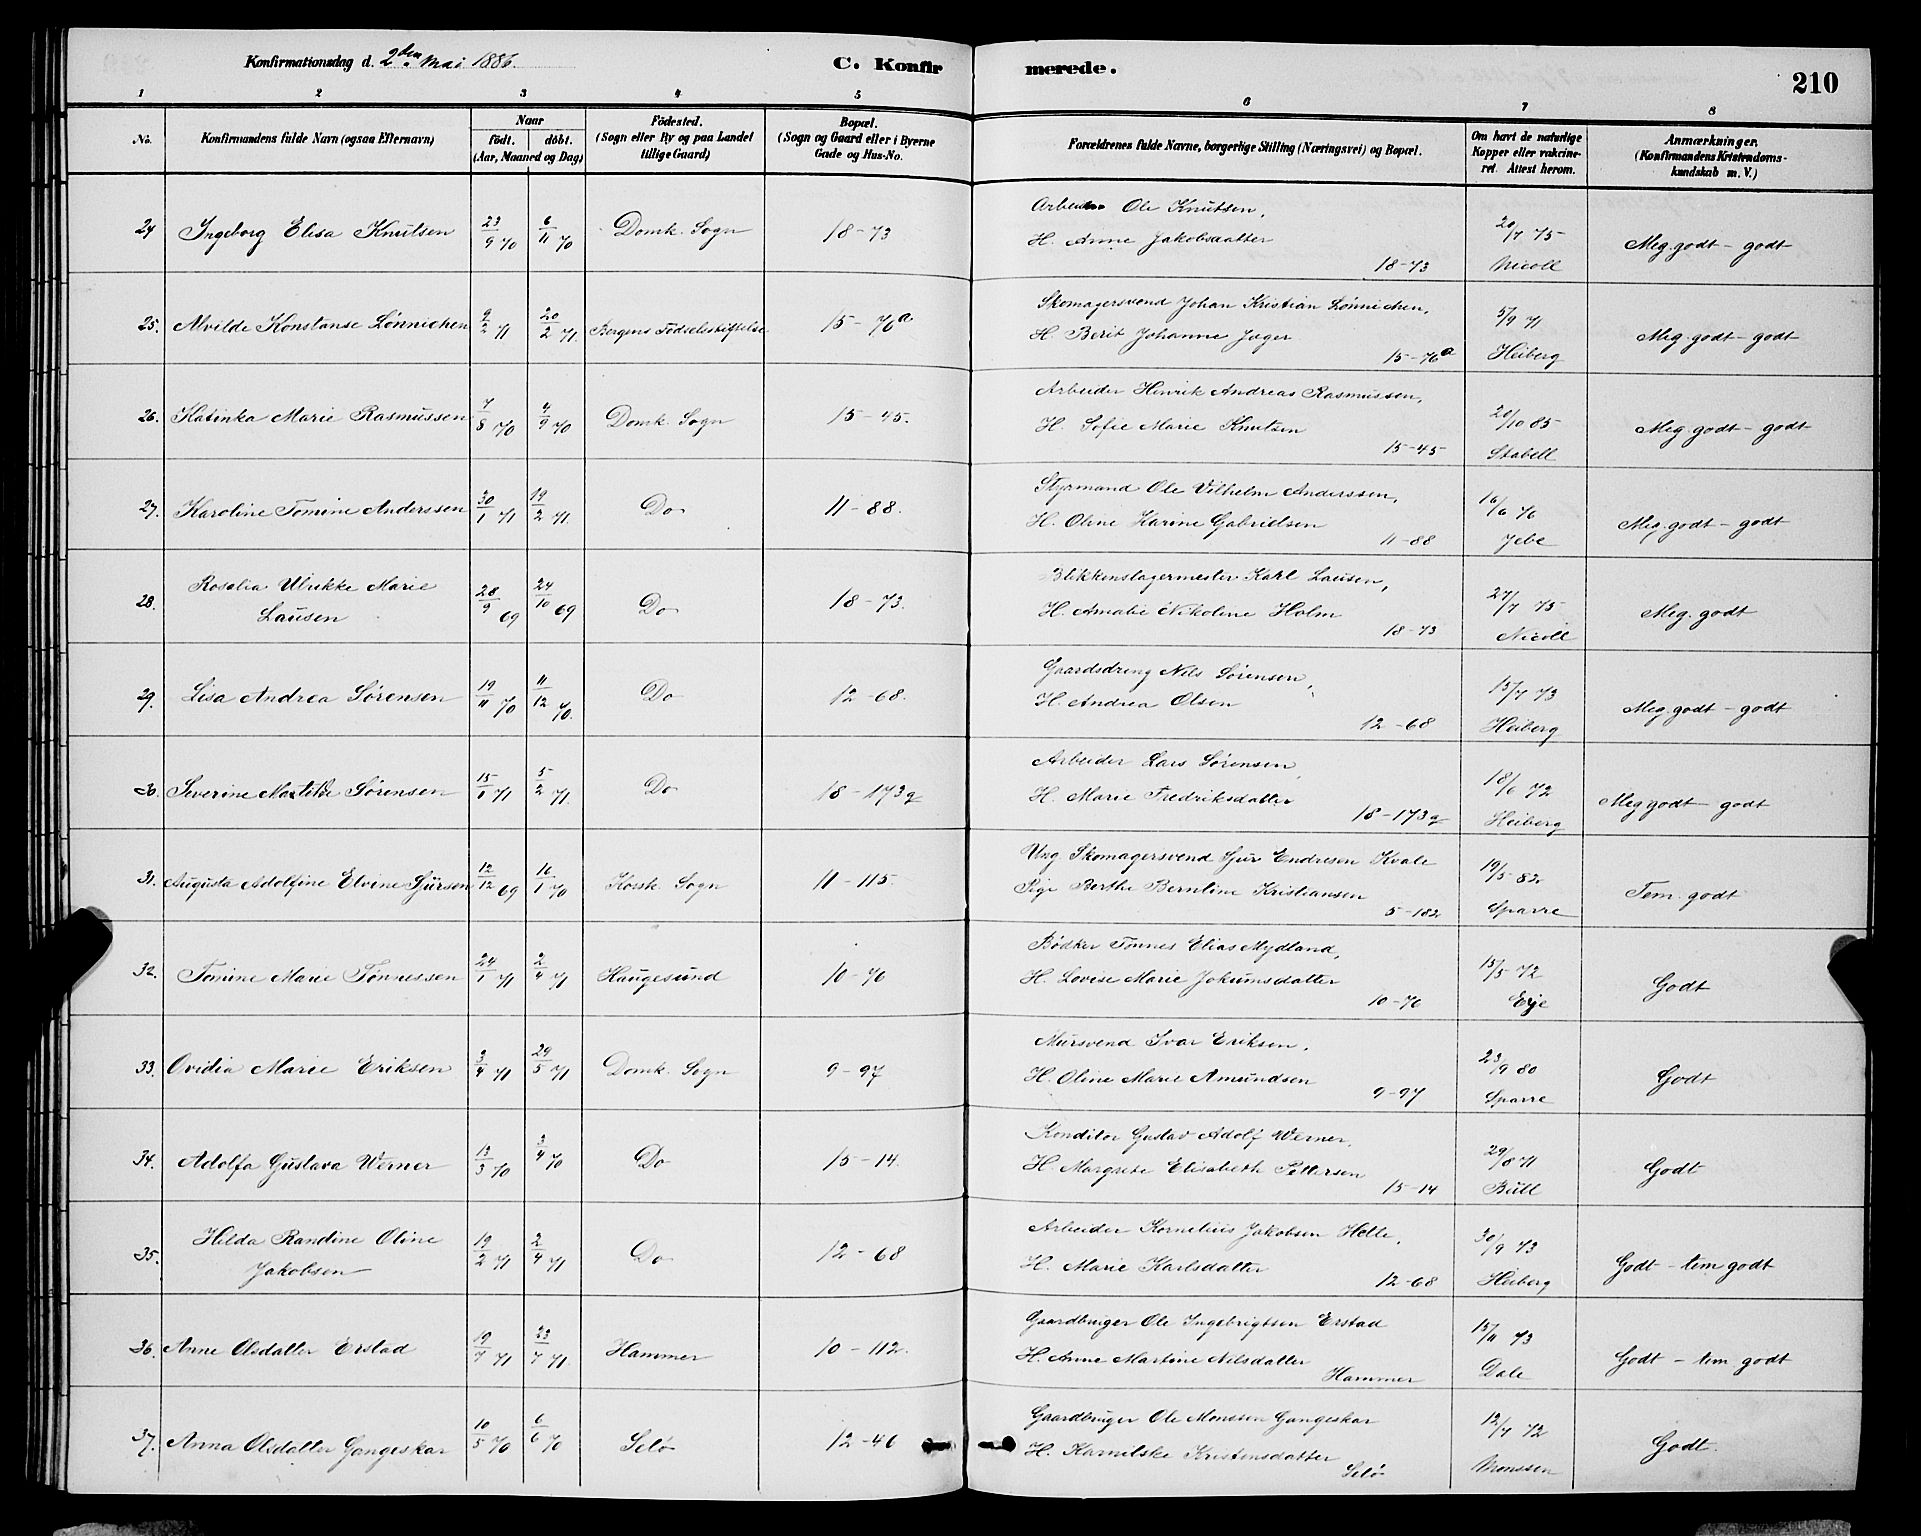 Konfirmationsdag d. 2den Mai 1886. C. Konfirmerede. 210
1 2 3 4 5 6 7 8
No. Konfirmandens fulde Navn (ogsaa Efternavn) Naar födt. döbt. (Aar, Maaned og Dag) Födested. (Sogn eller By og paa Landet tillige Gaard) Bopæl. (Sogn og Gaard eller i Byerne Gade og Hus-No. Forældrenes fulde Navne, borgerlige Stilling (Næringsvei) og Bopæl. Om havt de naturlige Kopper eller vakcineret. Attest herom. Anmærkninger. (Konfirmandens Kristendomskundskab m. V.)
24 Ingeborg Elisa Knutsen 23/9 70 6/11 70 Domk. Sogn 18-73 Arbeider Ole Knutsen, 20/7 75 Meg. godt - godt
H. Anne Jakobsdatter
18-73 Nicoll
25. Alvilde Konstanse Lönnichen 9/2 71 20/2 71. Bergens Födselsstiftelse 15-76a Skomagersvend Johan Kristian Lönnichen, 5/9 71 Meg. godt - godt
H. Berit Johanne Jager
15-76a Heiberg
26. Katinka Marie Rasmussen 7/8 70 4/9 70 Domk. Sogn 15-45. Arbeider Henrik Andreas Rasmussen, 20/10 85 Meg. godt - godt
H. Sofie Marie Knutsen
15-45 Stabell
27. Karoline Tomine Anderssen 30/1 71 19/2 71. Do 11-88. Styrmand Ole Vilhelm Anderssen, 16/6 76 Meg. godt - godt
H. Oline Karine Gabrielsen
11-88 Jebe
28. Rosalia Ulrikke Marie 28/9 69 24/10 69 Do 18-73. Blikkenslagermester Karl Lausen, 27/7 75 Meg. godt
Lausen H. Amalie Nikoline Holm
18-73 Nicoll
29. Lisa Andrea Sørensen 19/11 70 11/12 70. Do 12-68. Gaardsdreng Nils Sørensen, 15/7 73 Meg. godt - godt
H. Andrea Olsen
12-68 Heiberg
30. Severine Matilde Sørensen 15/1 71 5/2 71. Do 18-173g Arbeider Lars Sørensen, 18/6 72 Meg godt - godt
H. Marie Fredriksdatter
18-173g Heiberg
31. Augusta Adolfine Elvine Sjursen 12/12 69 16/1 70 Korsk. Sogn 11-115. Ung Skomagersvend Sjur Endresen Kvale 19/5 82 Tem. godt
Pige Berthe Berntine Kristiansen
5-182 Sparre
32. Tomine Marie Tønnessen 24/1 71 2/4 71 Haugesund 10-76 Bødker Tønnes Elias Mydland, 15/5 72 Godt
H. Lovise Marie Jokumsdatter
10-76 Erje
33. Ovidia Marie Eriksen 3/4 71 29/5 71 Domk. Sogn 9-97 Mursvend Ivar Eriksen, 23/9 80 Godt
H. Oline Marie Amundsen
9-97 Sparre
34. Adolfa Gustava Werner 13/3 70 3/4 70 Do 15-14. Konditor Gustav Adolf Werner, 29/8 71 Godt
H. Margrete Elisabeth Pettersen
15-14 Bull
35. Hilda Randine Oline 19/2 71 2/4 71 Do 12-68 Arbeider Kornelius Jakobsen Helle, 30/9 73 Godt - tem godt
Jakobsen H. Marie Karlsdatter
12-68 Heiberg
36. Anne Olsdatter Erstad 19/7 71 23/7 71 Hammer 10-112. Gaardbruger Ole Ingebrigtsen Erstad 15/11 73 Godt - tem godt
H. Anne Martine Nilsdatter
Hammer Dale
37. Anna Olsdatter Gangeskar 10/5 70 6/6 70 Selø 12-46 Gaardbruger Ole Monssen Gangeskar 12/7 72 Godt.
H. Kamilske Kristensdatter
Selø Monssen